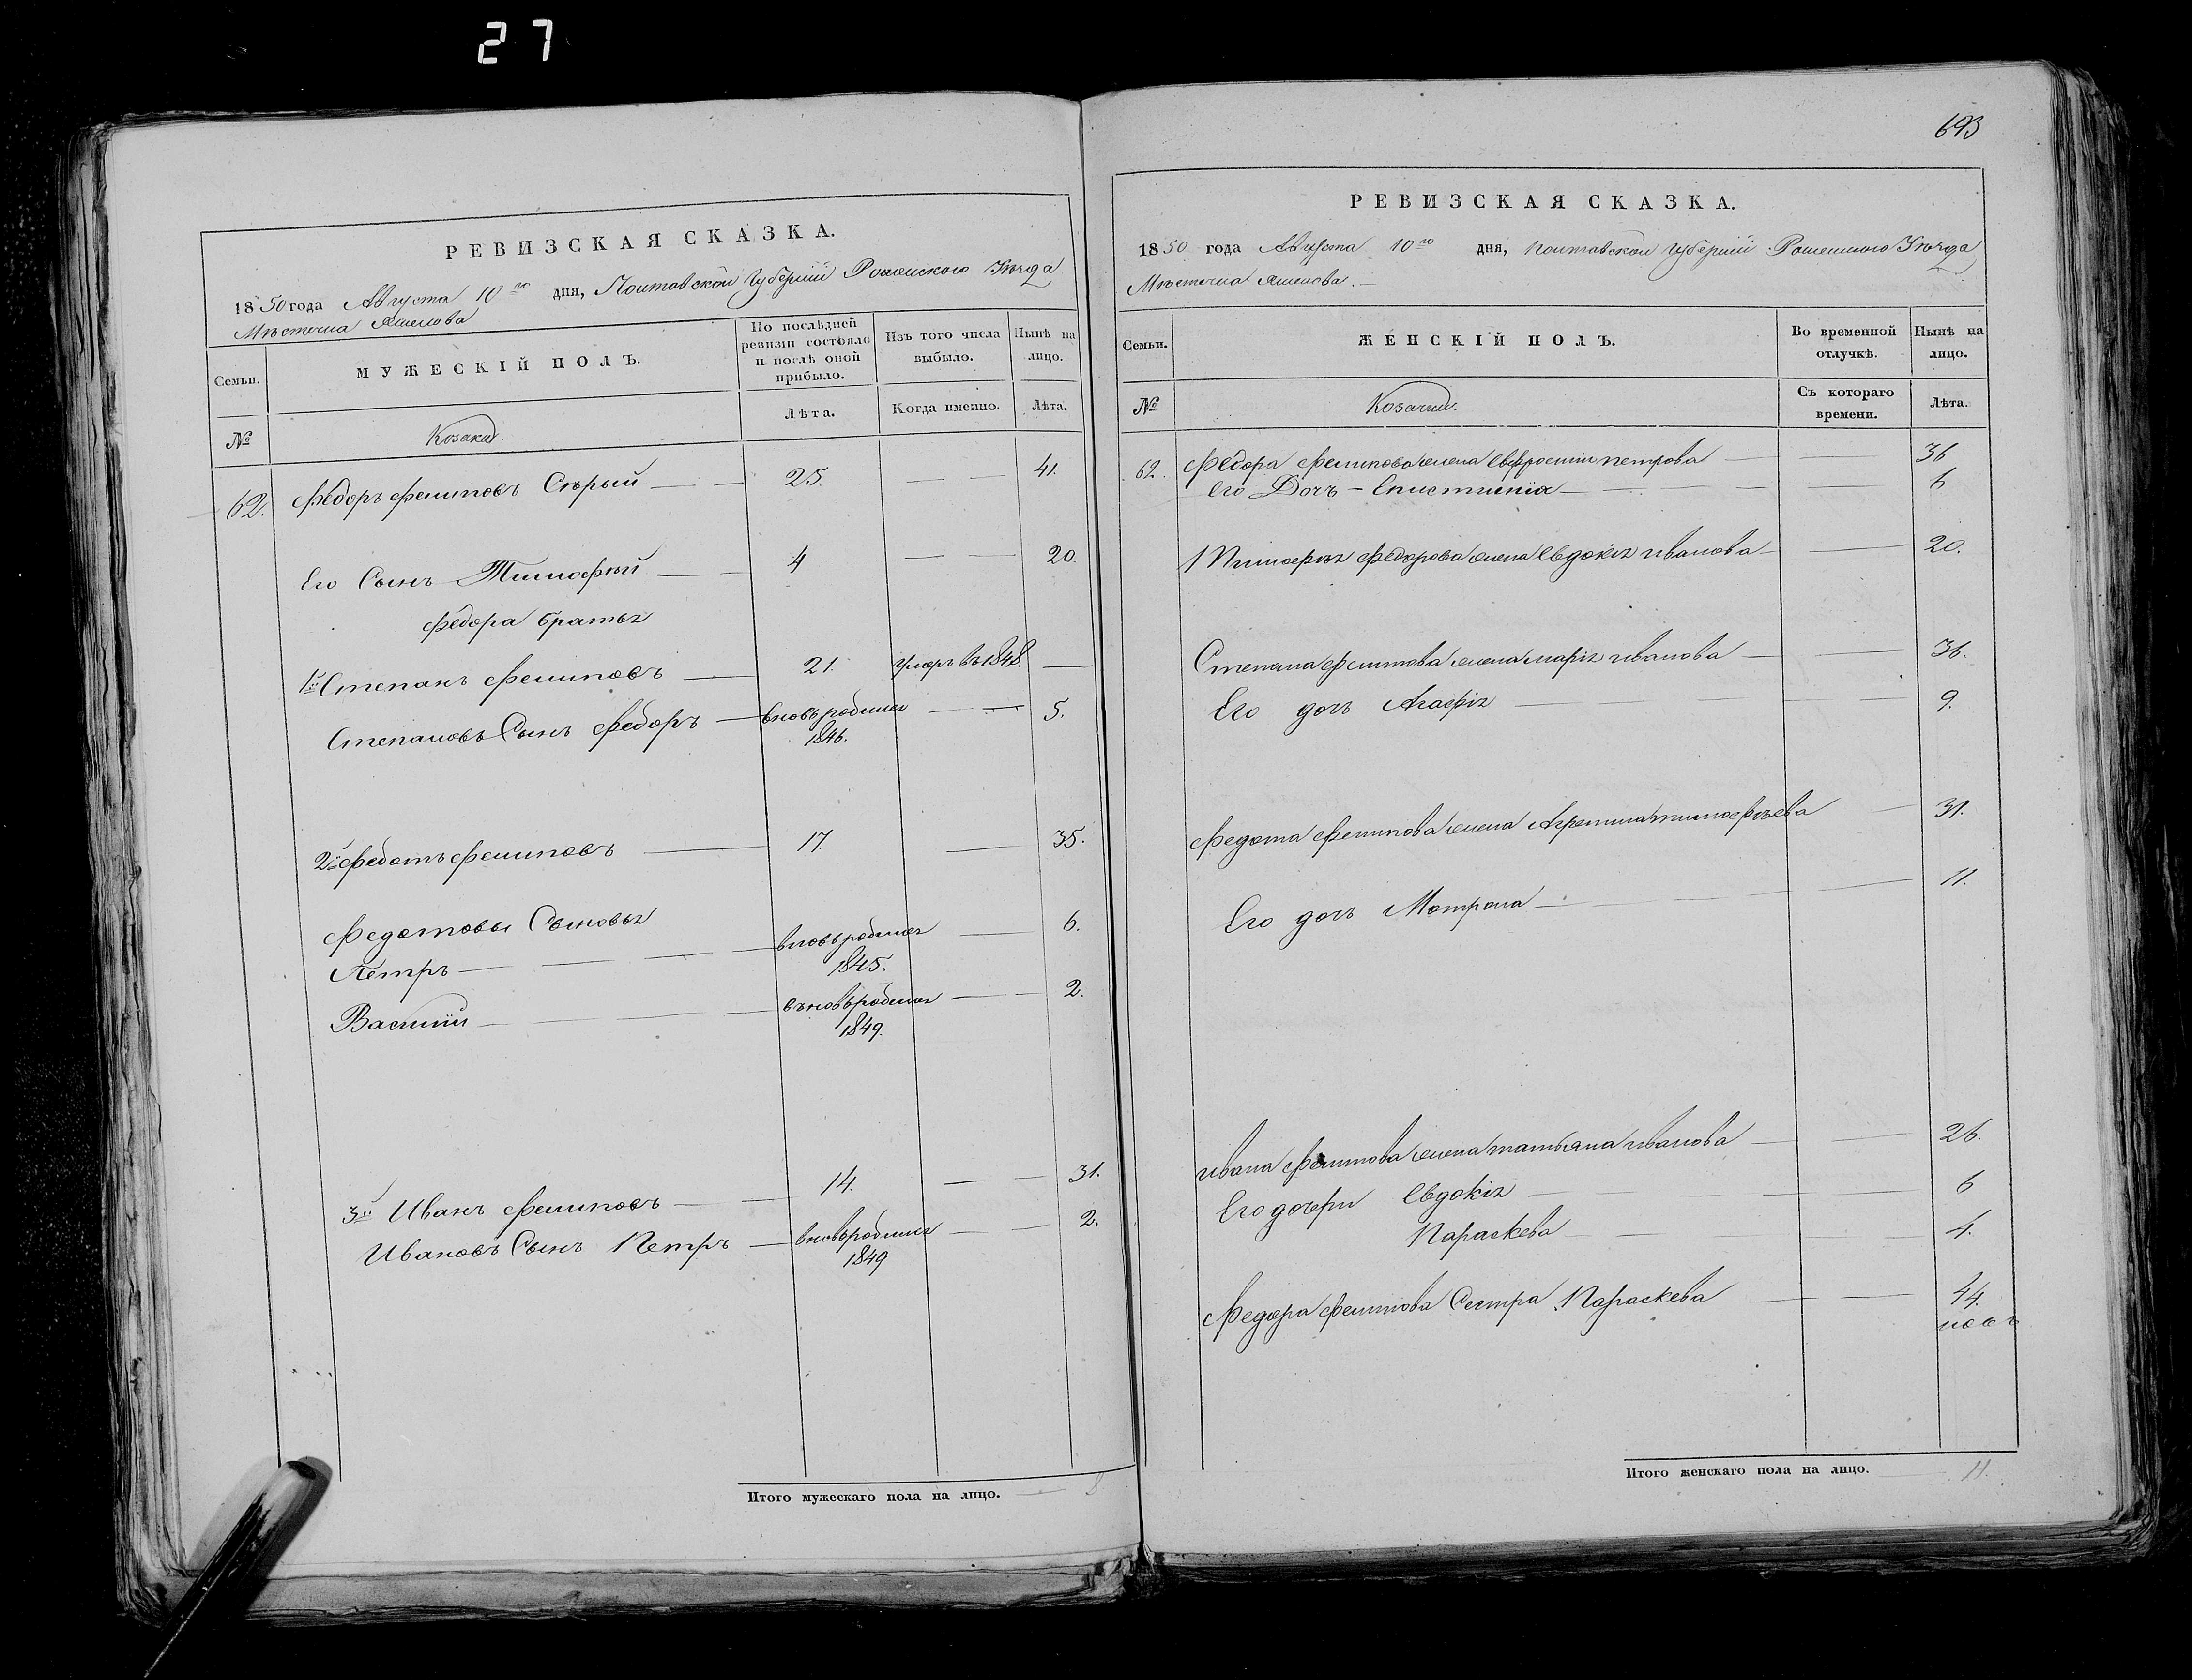 27
693
РЕВИЗСКАЯ СКАЗКА.
1850 года Августа 10го дня, Полтавской Губернiи Роменского Уѣзда
Мѣстечка
Семьи.
МУЖЕСКІЙ ПОЛЪ.
По послѣдней ревизіи состояло и послѣ оной прибыло.
Изъ того числа выбыло.
Нынѣ на лицо.
№
Козаки.
Лѣта.
Когда именно.
Лѣта.
62. Федоръ Филиповъ Сѣрый — 25 — — 41.
Его Сынъ Тимофѣй — 4 — — 20.
Федора братья
1й Степанъ Филиповъ — 21. умеръ въ 1848. —
Степановъ Сынъ Федоръ — вновьродился — — 5.
1846.
2й Федотъ Филиповъ — 17. — 35.
Федотовы Сыновья
Петръ — — — вновьродился — 6.
1845.
Василiй — — — въновьродился — — 2.
1849.
3й Иванъ Филиповъ — — 14. — — 31.
Ивановъ Сынъ Петръ — вновьродился — — 2.
1849
Итого мужескаго пола на лицо. — 8
РЕВИЗСКАЯ СКАЗКА.
1850 года Августа 10го дня, Полтавской Губернiи Роменского Уѣзда
Мѣстечка
Семьи.
ЖЕНСКІЙ ПОЛЪ.
Во временной отлучкѣ.
Нынѣ на лицо.
№
Козачки.
Съ котораго времени.
Лѣта.
62. Федора Филипова жена Евфросинiя петрова — — 36
Его Дочъ — Епистимiя — — — 6
Тимофѣя Федорова жена Евдокiя иванова — — 20.
Степана Филипова жена марiя иванова — — 36.
Его дочъ Агафiя — — — 9.
Федота Филипова жена тимофѣева — 31.
Его дочъ Мотрона — — — 11.
ивана Филипова жена татьяна иванова — — 26.
Его дочери Евдокiя — — 6
Параскева — —
Федора Филипова Сестра Параскева — — 44.
Итого женскаго пола на лицо. — 11.